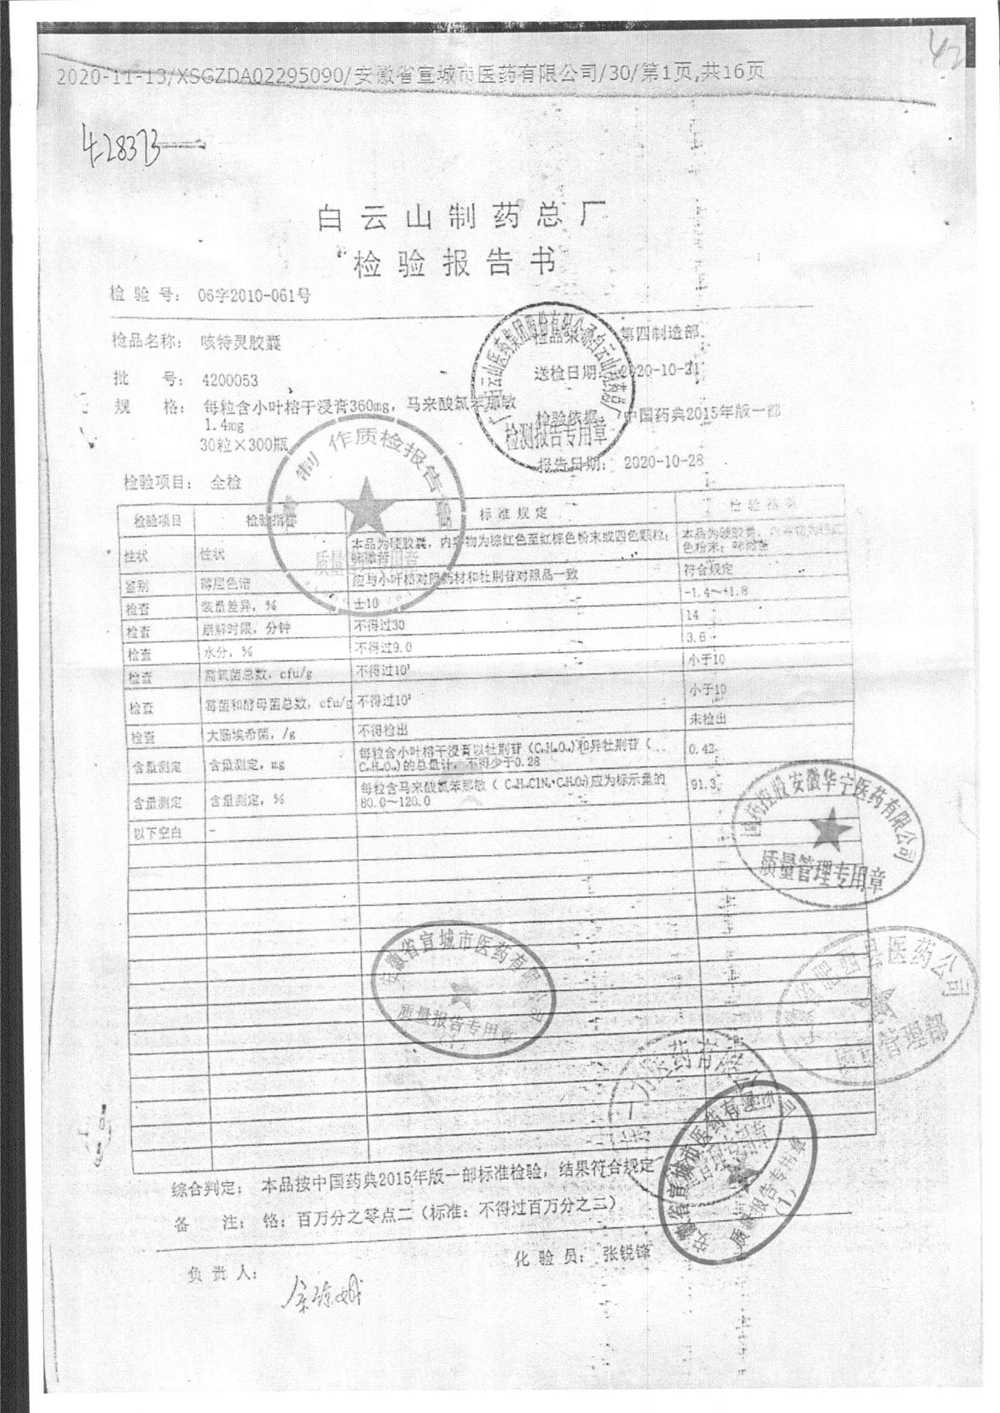 2020-11-13/XSGZDA02295090/安徽省宣城市医药有限公司/30/第1页,共16页
白云山制药总厂
检验报告书
检 验 号: 06字2010-061号
检品名称: 咳特灵胶囊 第四制造部
批 号: 4200053 送检日期: 2020-10-21
规 格: 每粒含小叶榕干浸膏360mg, 马来酸氯苯那敏 检验依据: 中国药典2015年版一部
1.4mg
30粒×300瓶
检验项目: 全检 报告日期: 2020-10-28
检测报告专用章
制作质检报告
检验项目 检验指标 标准规定
性状 性状 本品为硬胶囊, 内容物为棕红色至红棕色粉末或四色颗粒; 本品为硬胶囊,
色粉末;
鉴别 薄层色谱 应与小叶榕对照药材和牡荆苷对照品一致 符合规定
检查 装量差异, % ±10 -1.4~+1.8
检查 崩解时限, 分钟 不得过30 14
检查 水分, % 不得过9.0 3.6
检查 需氧菌总数, cfu/g 不得过10³ 小于10
检查 霉菌和酵母菌总数, cfu/g 不得过10² 小于10
检查 大肠埃希菌, /g 不得检出 未检出
含量测定 含量测定, mg 每粒含小叶榕干浸膏以牡荆苷 和异牡荆苷 的总量计, 不得少于0.28 0.42
含量测定 含量测定, % 每粒含马来酸氯苯那敏 应为标示量的 91.3
80.0~120.0
以下空白 -
国药控股安徽华宁医药有限公司
质量管理专用章
安徽省宣城市医药有限公司
质量报告专用章
肥西县医药公司
质量管理部
安徽省宣城市医药有限公司
综合判定: 本品按中国药典2015年版一部标准检验, 结果符合规定
备 注: 铬: 百万分之零点二 (标准: 不得过百万分之二)
负 责 人: 化 验 员: 张锐锋